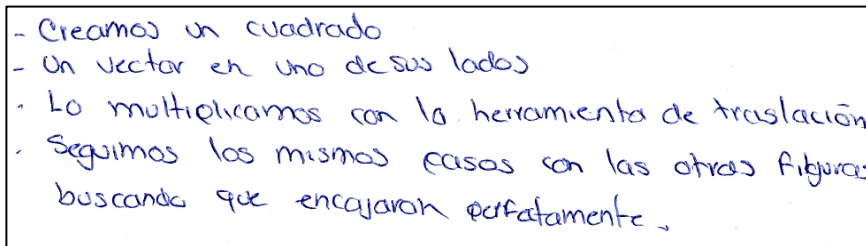 - Creamos un cuadrado
- Un vector en uno de sus lados
. Lo multiplicamos con la herramienta de traslación
. Seguimos los mismos pasos con las otras figuras
buscando que encajaran perfatamente.